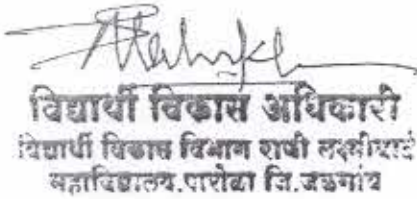 विद्यार्थी विकास अधिकारी
विद्यार्थी विकास विभाग राणी लक्ष्मीबाई
महाविद्यालय.पारोळा जि.जळगांव